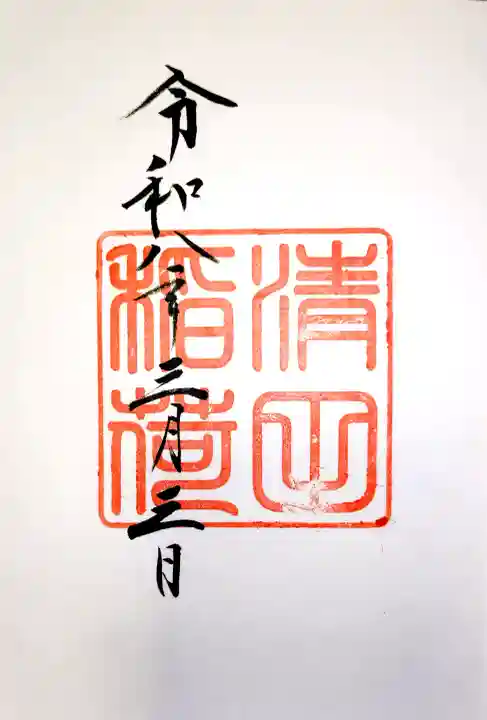 令和八年三月三日
清田
稲荷